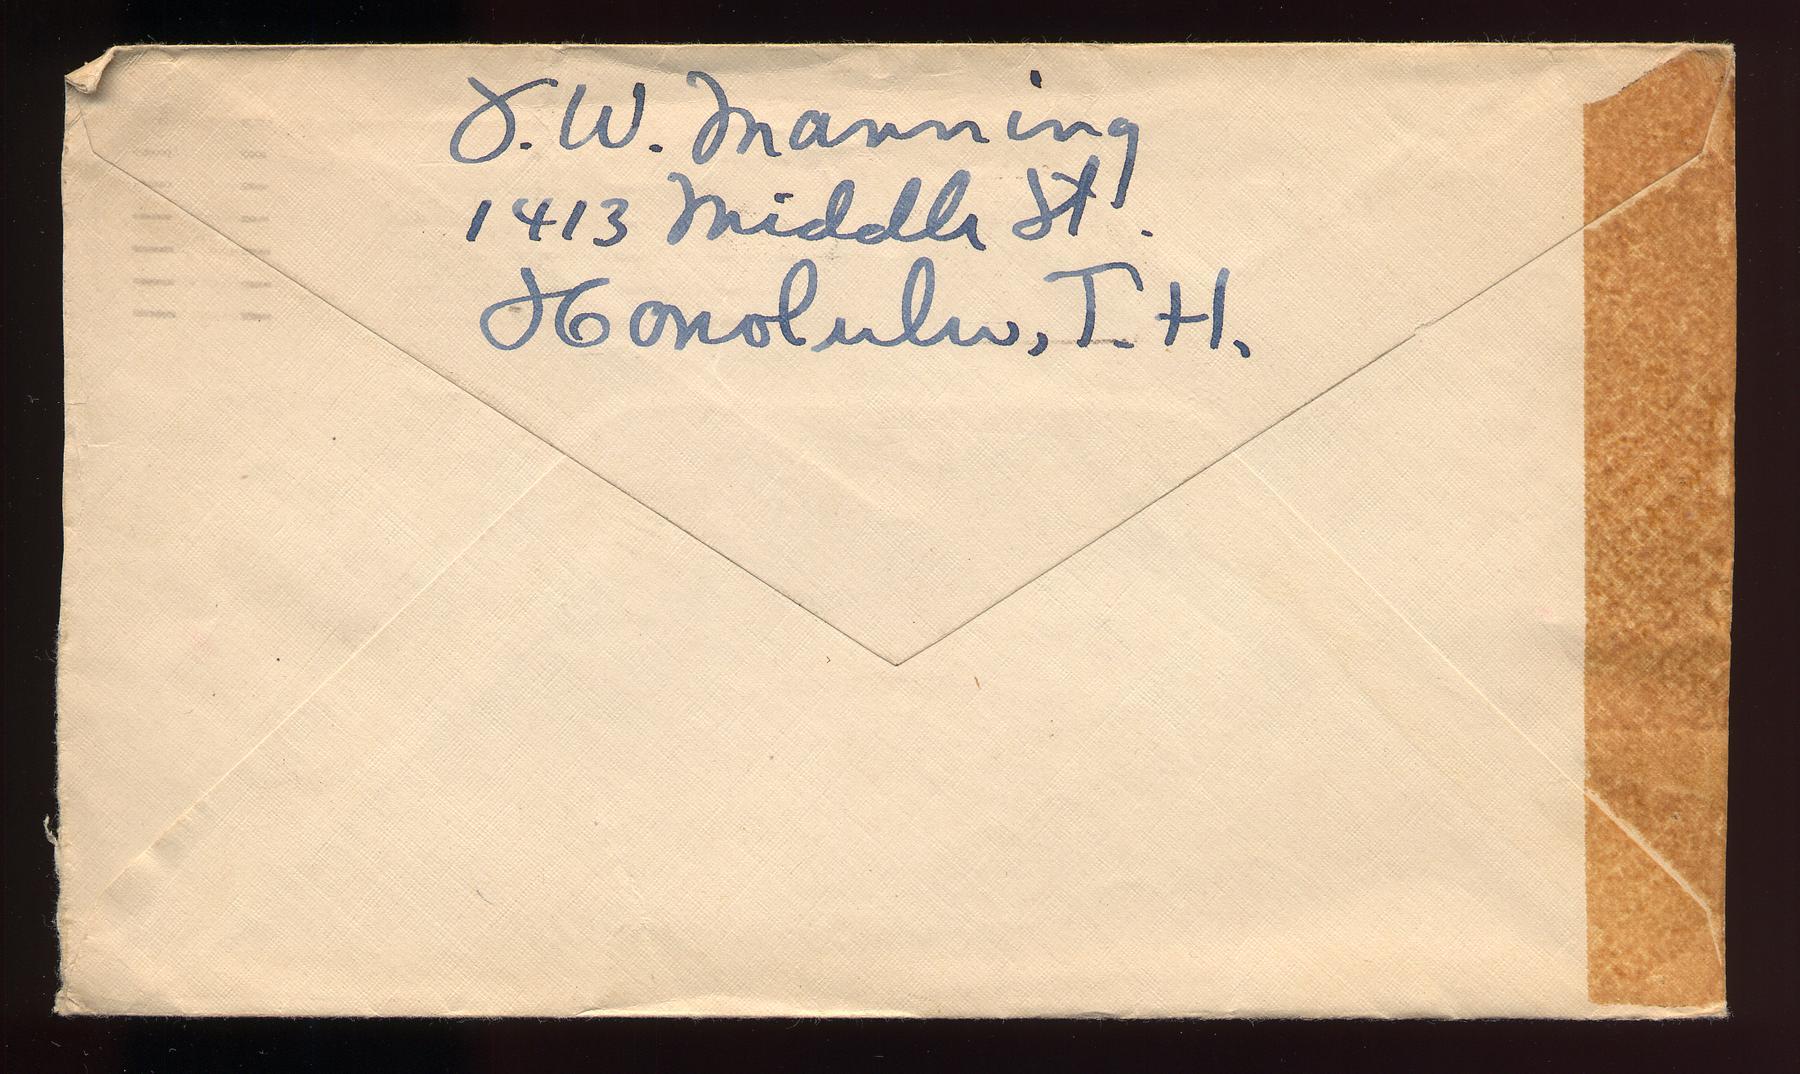 J. W. Manning
1413 Middle St.
Honolulu, T. H.